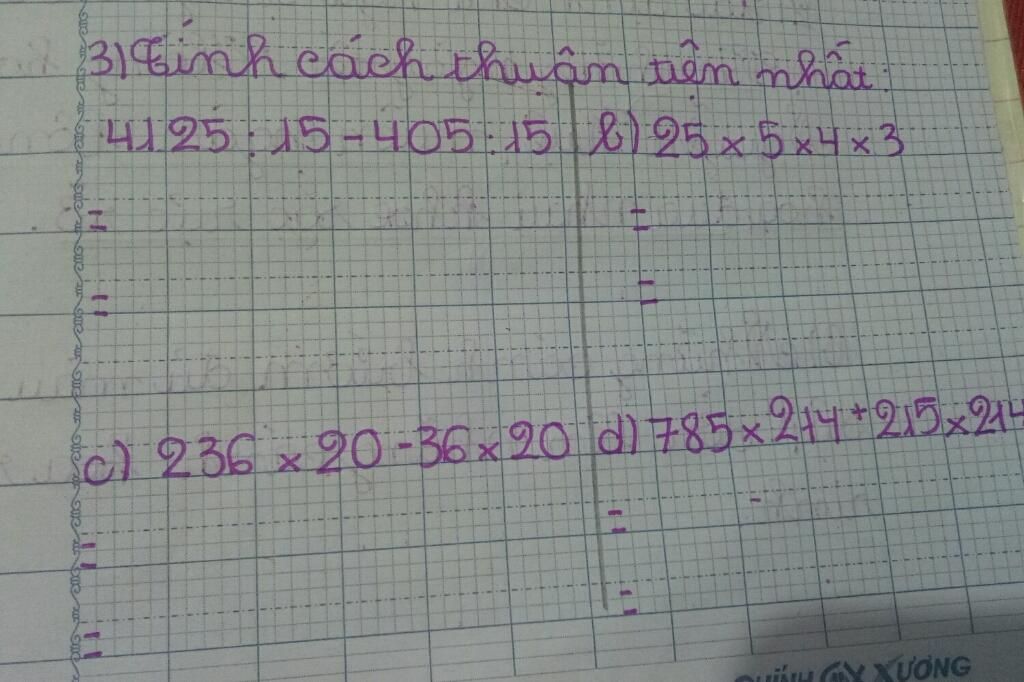 3) Tính cách thuận tiện nhất:
4125 : 15 - 405 : 15
b) 25 × 5 × 4 × 3
=
=
=
=
c) 236 × 20 - 36 × 20
d) 785 × 214 + 215 × 214
=
=
=
=
XƯƠNG